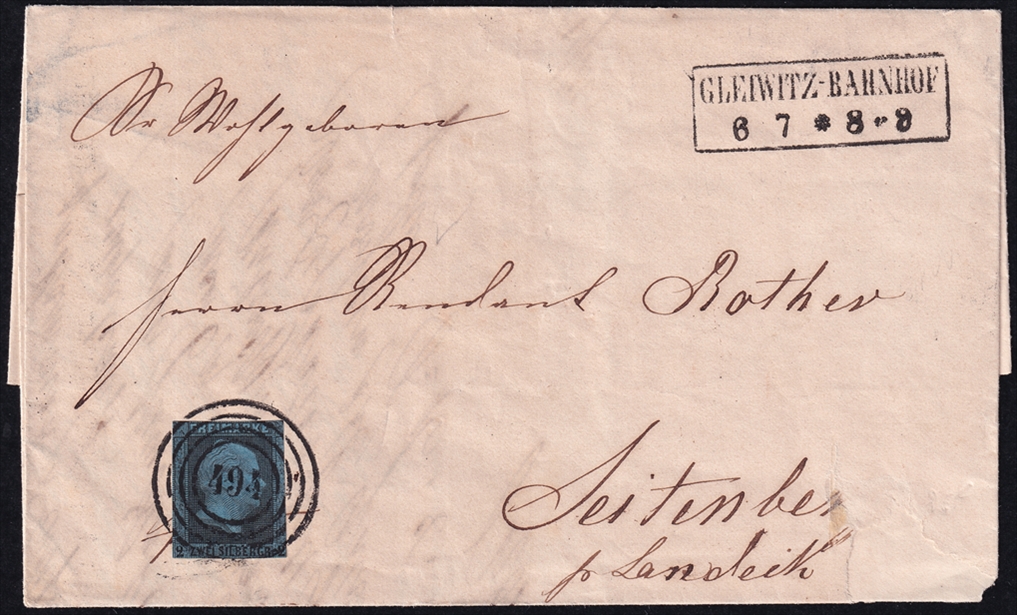 Sr Wohlgeboren
GLEIWITZ-BAHNHOF
6 7 * 8-9
Herrn Rendant Rother
FREIMARKE
494
2 ZWEI SILBERGR. 2
Seitenbe
p Landeck